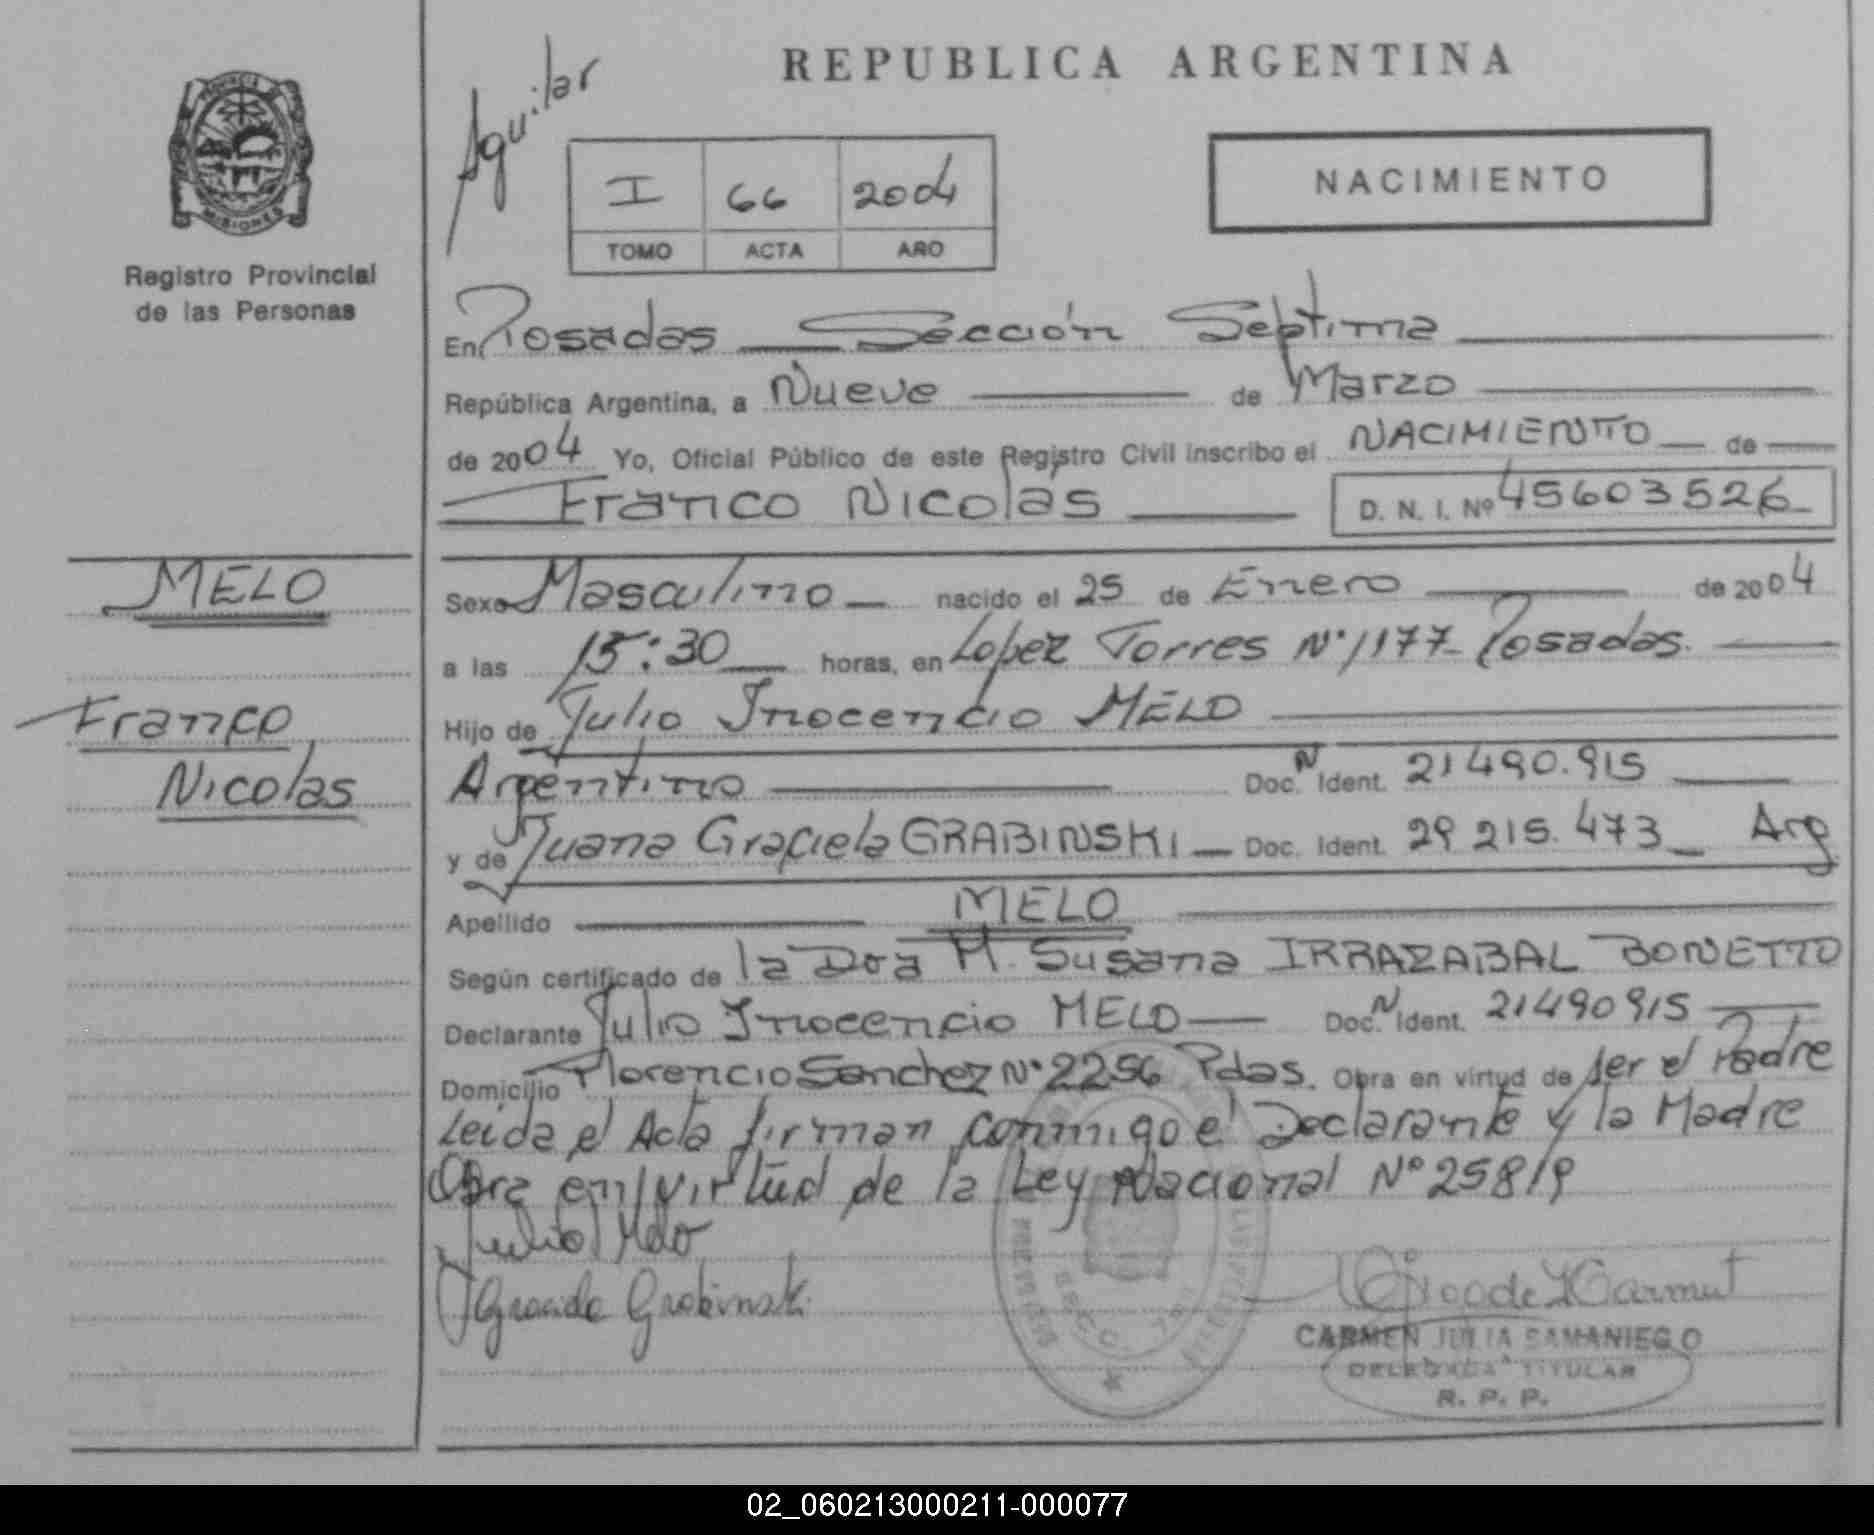 REPUBLICA ARGENTINA
Aguilar
PROVINCIA
MISIONES
Registro Provincial
de las Personas
I 66 2004
TOMO ACTA AÑO
NACIMIENTO
En Posadas Sección Septima
República Argentina, a Nueve de Marzo
de 2004 Yo, Oficial Público de este Registro Civil inscribo el NACIMIENTO de
Franco Nicolás D. N. I. Nº 45603526
MELO
Franco
Nicolas
Sexo Masculino nacido el 25 de Enero de 2004
a las 15:30 horas, en Lopez Torres Nº 1177 Posadas.
Hijo de Julio Inocencio MELO
Argentino Doc. N Ident. 21490.915
y de Juana Graciela GRABINSKI Doc. Ident. 29 215.473 Arg
Apellido MELO
Según certificado de la Dra M. Susana IRRAZABAL BONETTO
Declarante Julio Inocencio MELO Doc. N Ident. 21490915
Domicilio Florencio Sanchez Nº 2256 Pdas. Obra en virtud de ser el Padre
Leida el Acta firman conmigo el Declarante y la Madre
Obra en virtud de la Ley Nacional Nº 25819
Julio Melo
Graciela Grabinski
CARMEN JULIA SAMANIEGO
DELEGADA TITULAR
R. P. P.
02_060213000211-000077